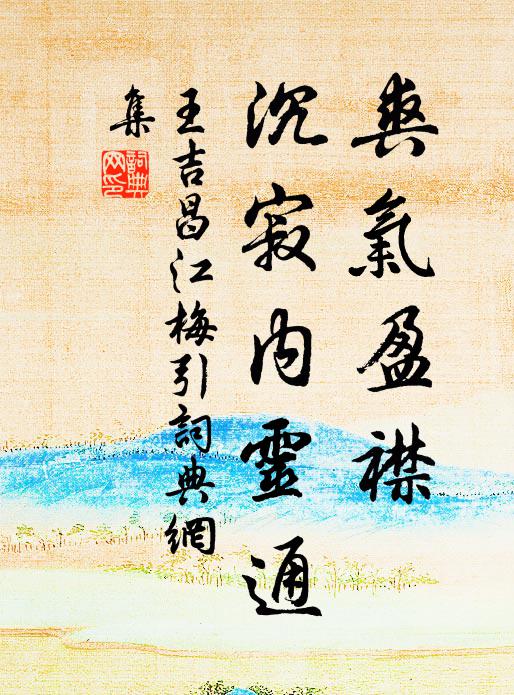 爽氣盈襟
沉寂內靈通
王吉昌江梅引詞典網
集
詞典網印